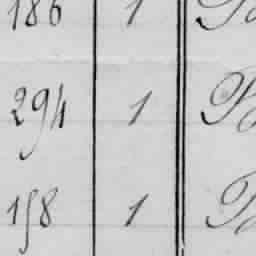 186 1
294 1
158 1